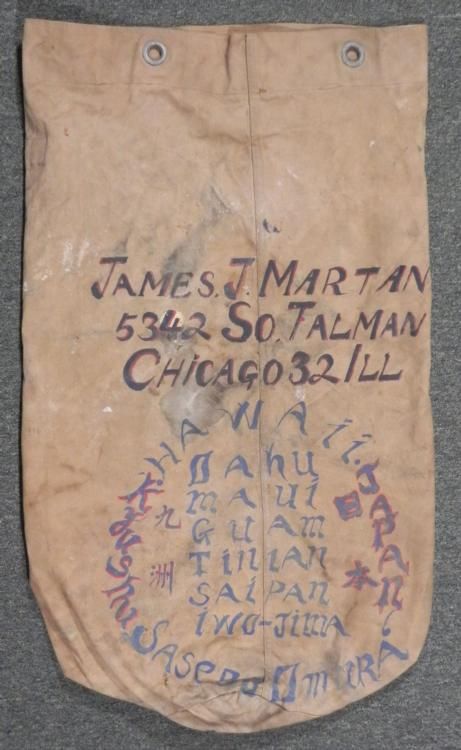 JAMES. J. MARTAN
5342 SO. TALMAN
CHICAGO 32 ILL
HAWAii. JAPAN.
OAHU
MAUi
GUAM
TINIAN
SAiPAN
IWO-JIMA
九洲
日本
KYUSHU
SASEbo OmuRA